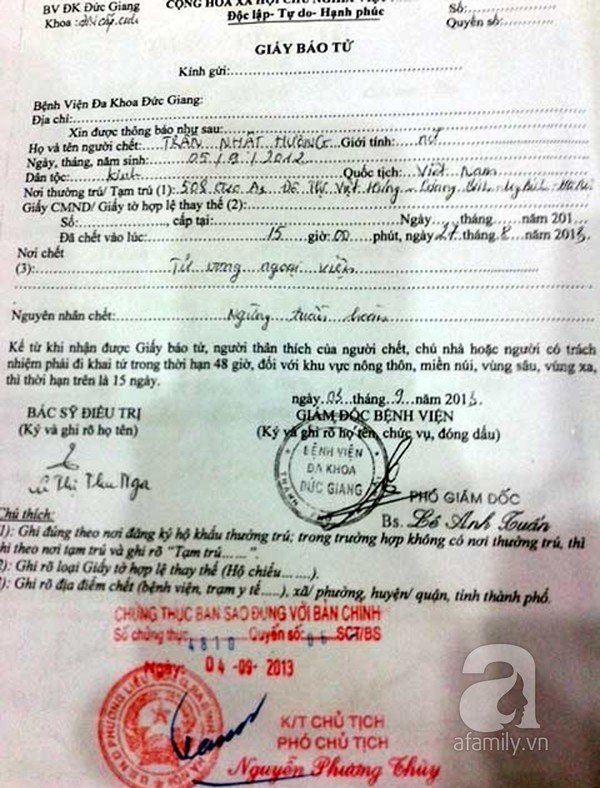 BV ĐK Đức Giang
CỘNG HÒA XÃ HỘI CHỦ NGHĨA VIỆT
Khoa: cấp cứu
Độc lập- Tự do- Hạnh phúc
Số:
Quyển số:
GIẤY BÁO TỬ
Kính gửi:
Bệnh Viện Đa Khoa Đức Giang:
Địa chỉ:
Xin được thông báo như sau:
Họ và tên người chết: TRẦN NHẬT HƯỜNG Giới tính: nữ
Ngày, tháng, năm sinh: 05/8/2012
Dân tộc: kinh Quốc tịch: Việt Nam
Nơi thường trú/ Tạm trú (1): 508 Việt Hưng - Long Biên - Hà Nội
Giấy CMND/ Giấy tờ hợp lệ thay thế (2):
Số:, cấp tại: Ngày tháng năm 201
Đã chết vào lúc: 15 giờ: 00 phút, ngày 27 tháng 8 năm 2013
Nơi chết
(3): Tử vong ngoại viện
Nguyên nhân chết: Ngừng tuần hoàn
Kể từ khi nhận được Giấy báo tử, người thân thích của người chết, chủ nhà hoặc người có trách
nhiệm phải đi khai tử trong thời hạn 48 giờ, đối với khu vực nông thôn, miền núi, vùng sâu, vùng xa,
thì thời hạn trên là 15 ngày.
ngày 03 tháng 9 năm 2013
BÁC SỸ ĐIỀU TRỊ
GIÁM ĐỐC BỆNH VIỆN
(Ký và ghi rõ họ tên)
(Ký và ghi rõ họ tên, chức vụ, đóng dấu)
BỆNH VIỆN
ĐA KHOA
ĐỨC GIANG
Lê Thị Thu Nga
PHÓ GIÁM ĐỐC
Bs. Lê Anh Tuấn
Chú thích:
1): Ghi đúng theo nơi đăng ký hộ khẩu thường trú; trong trường hợp không có nơi thường trú, thì
hi theo nơi tạm trú và ghi rõ “Tạm trú……”.
2): Ghi rõ loại Giấy tờ hợp lệ thay thế (Hộ chiếu........).
): Ghi rõ địa điểm chết (bệnh viện, trạm y tế.....), xã/ phường, huyện/ quận, tỉnh thành phố.
CHỨNG THỰC BẢN SAO ĐÚNG VỚI BẢN CHÍNH
Số chứng thực 4810 Quyển số: 06 SCT/BS
Ngày: 04 -09- 2013
K/T CHỦ TỊCH
PHÓ CHỦ TỊCH
Nguyễn Phương Thùy
a
afamily.vn